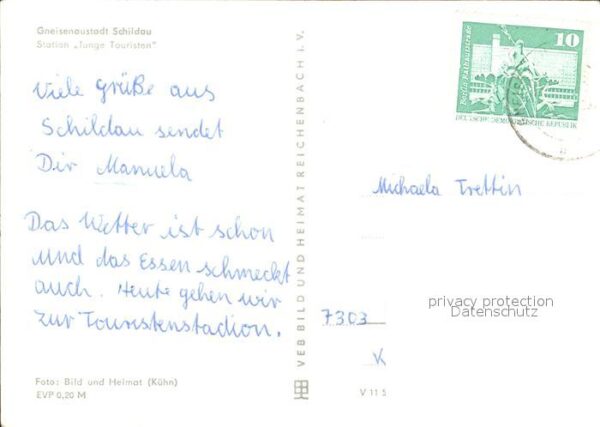 Gneisenaustadt Schildau
Station „Junge Touristen"
Viele Grüße aus
Schildau sendet
Dir Manuela
Das Wetter ist schon
und das Essen schmeckt
auch. Heute gehen wir
zur Touristenstadion.
Foto: Bild und Heimat (Kühn)
EVP 0,20 M
VEB BILD UND HEIMAT REICHENBACH i. V.
V 11 5
10
Berlin, Rathausstraße
DEUTSCHE DEMOKRATISCHE REPUBLIK
Michaela Trettin
7303
K
privacy protection
Datenschutz